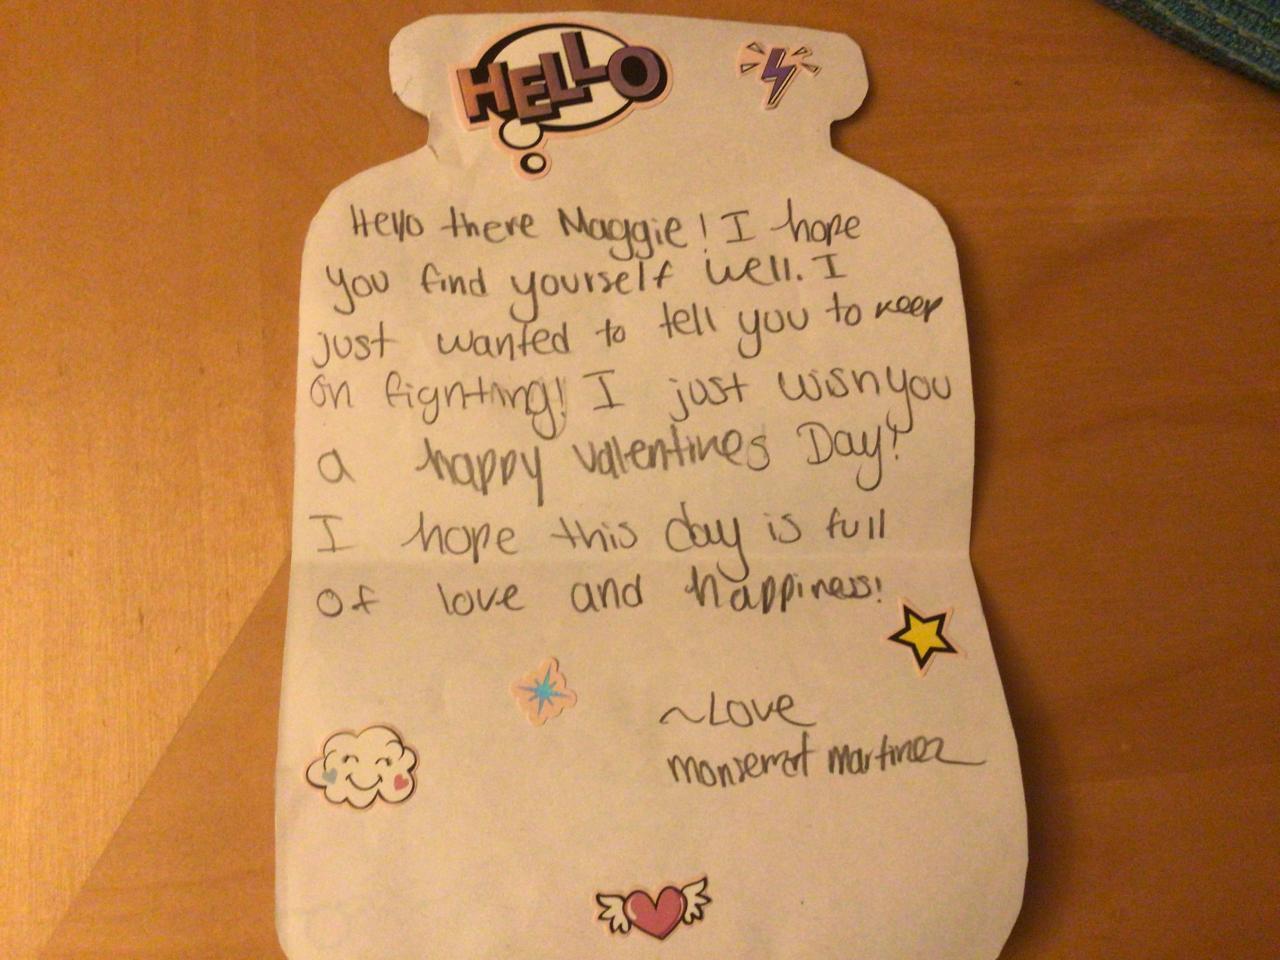 HELLO
Hello there Maggie! I hope
you find yourself well. I
just wanted to tell you to keep
on fighting! I just wish you
a happy valentines Day!
I hope this day is full
of love and happiness!
~Love
Monserrat Martinez